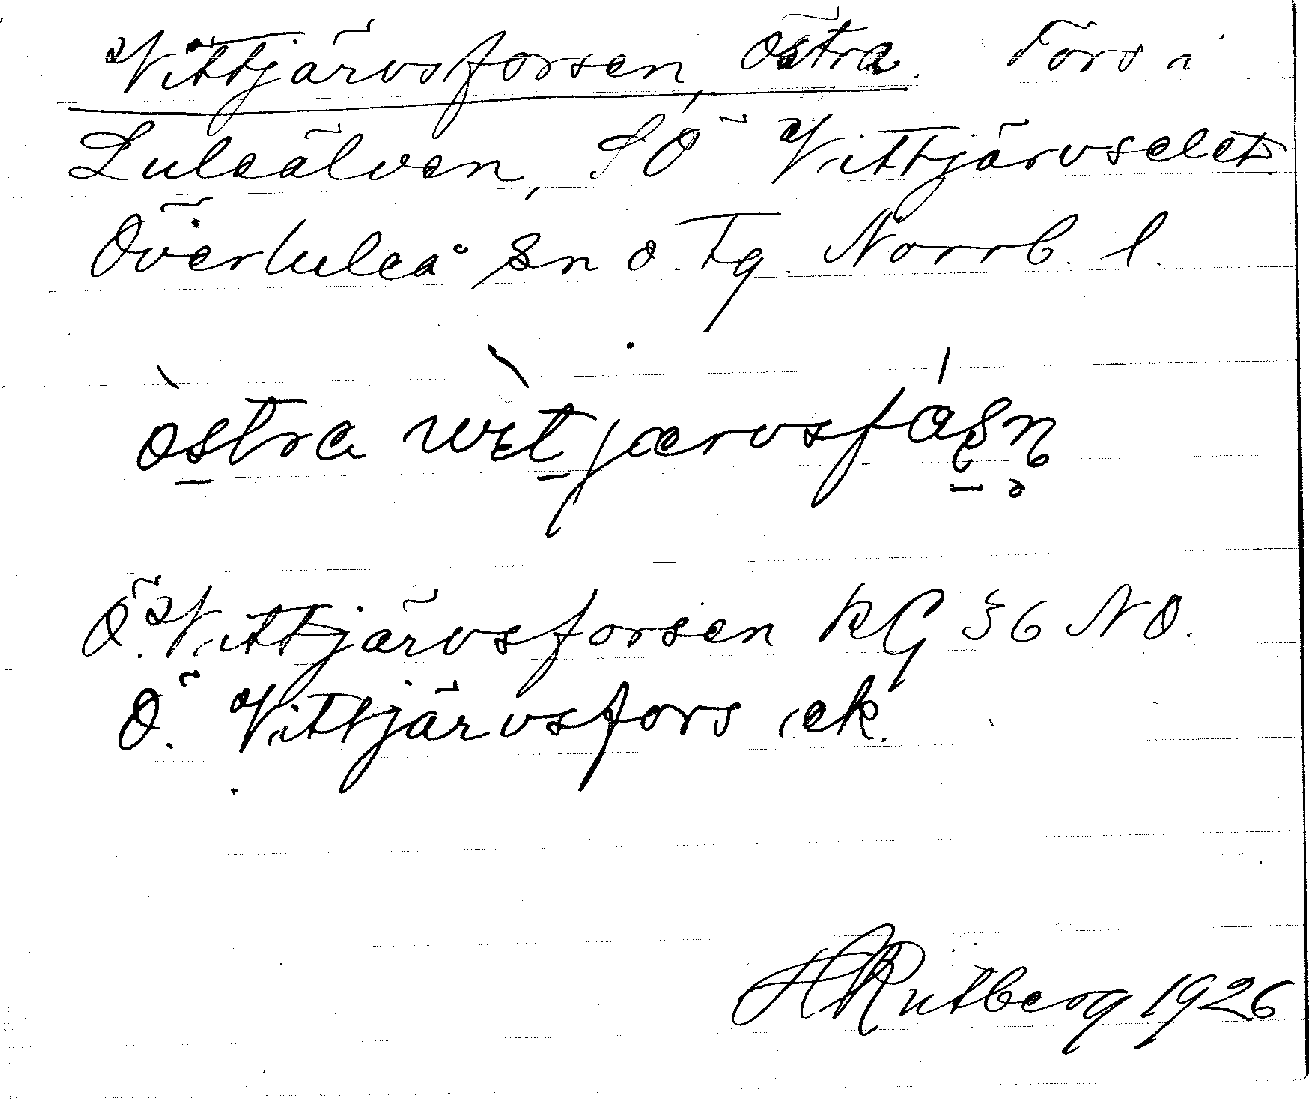 Vittjärvsforsen, östra. Fors i
Luleälven, SÖ Vittjärvselet
Överluleå sn o. tg. Norrb. l.
òstra wìtjærvsfáşņ
Ö. Vittjärvsforsen KG 36 NO.
Ö. Vittjärvsfors ek.
HRutberg 1926